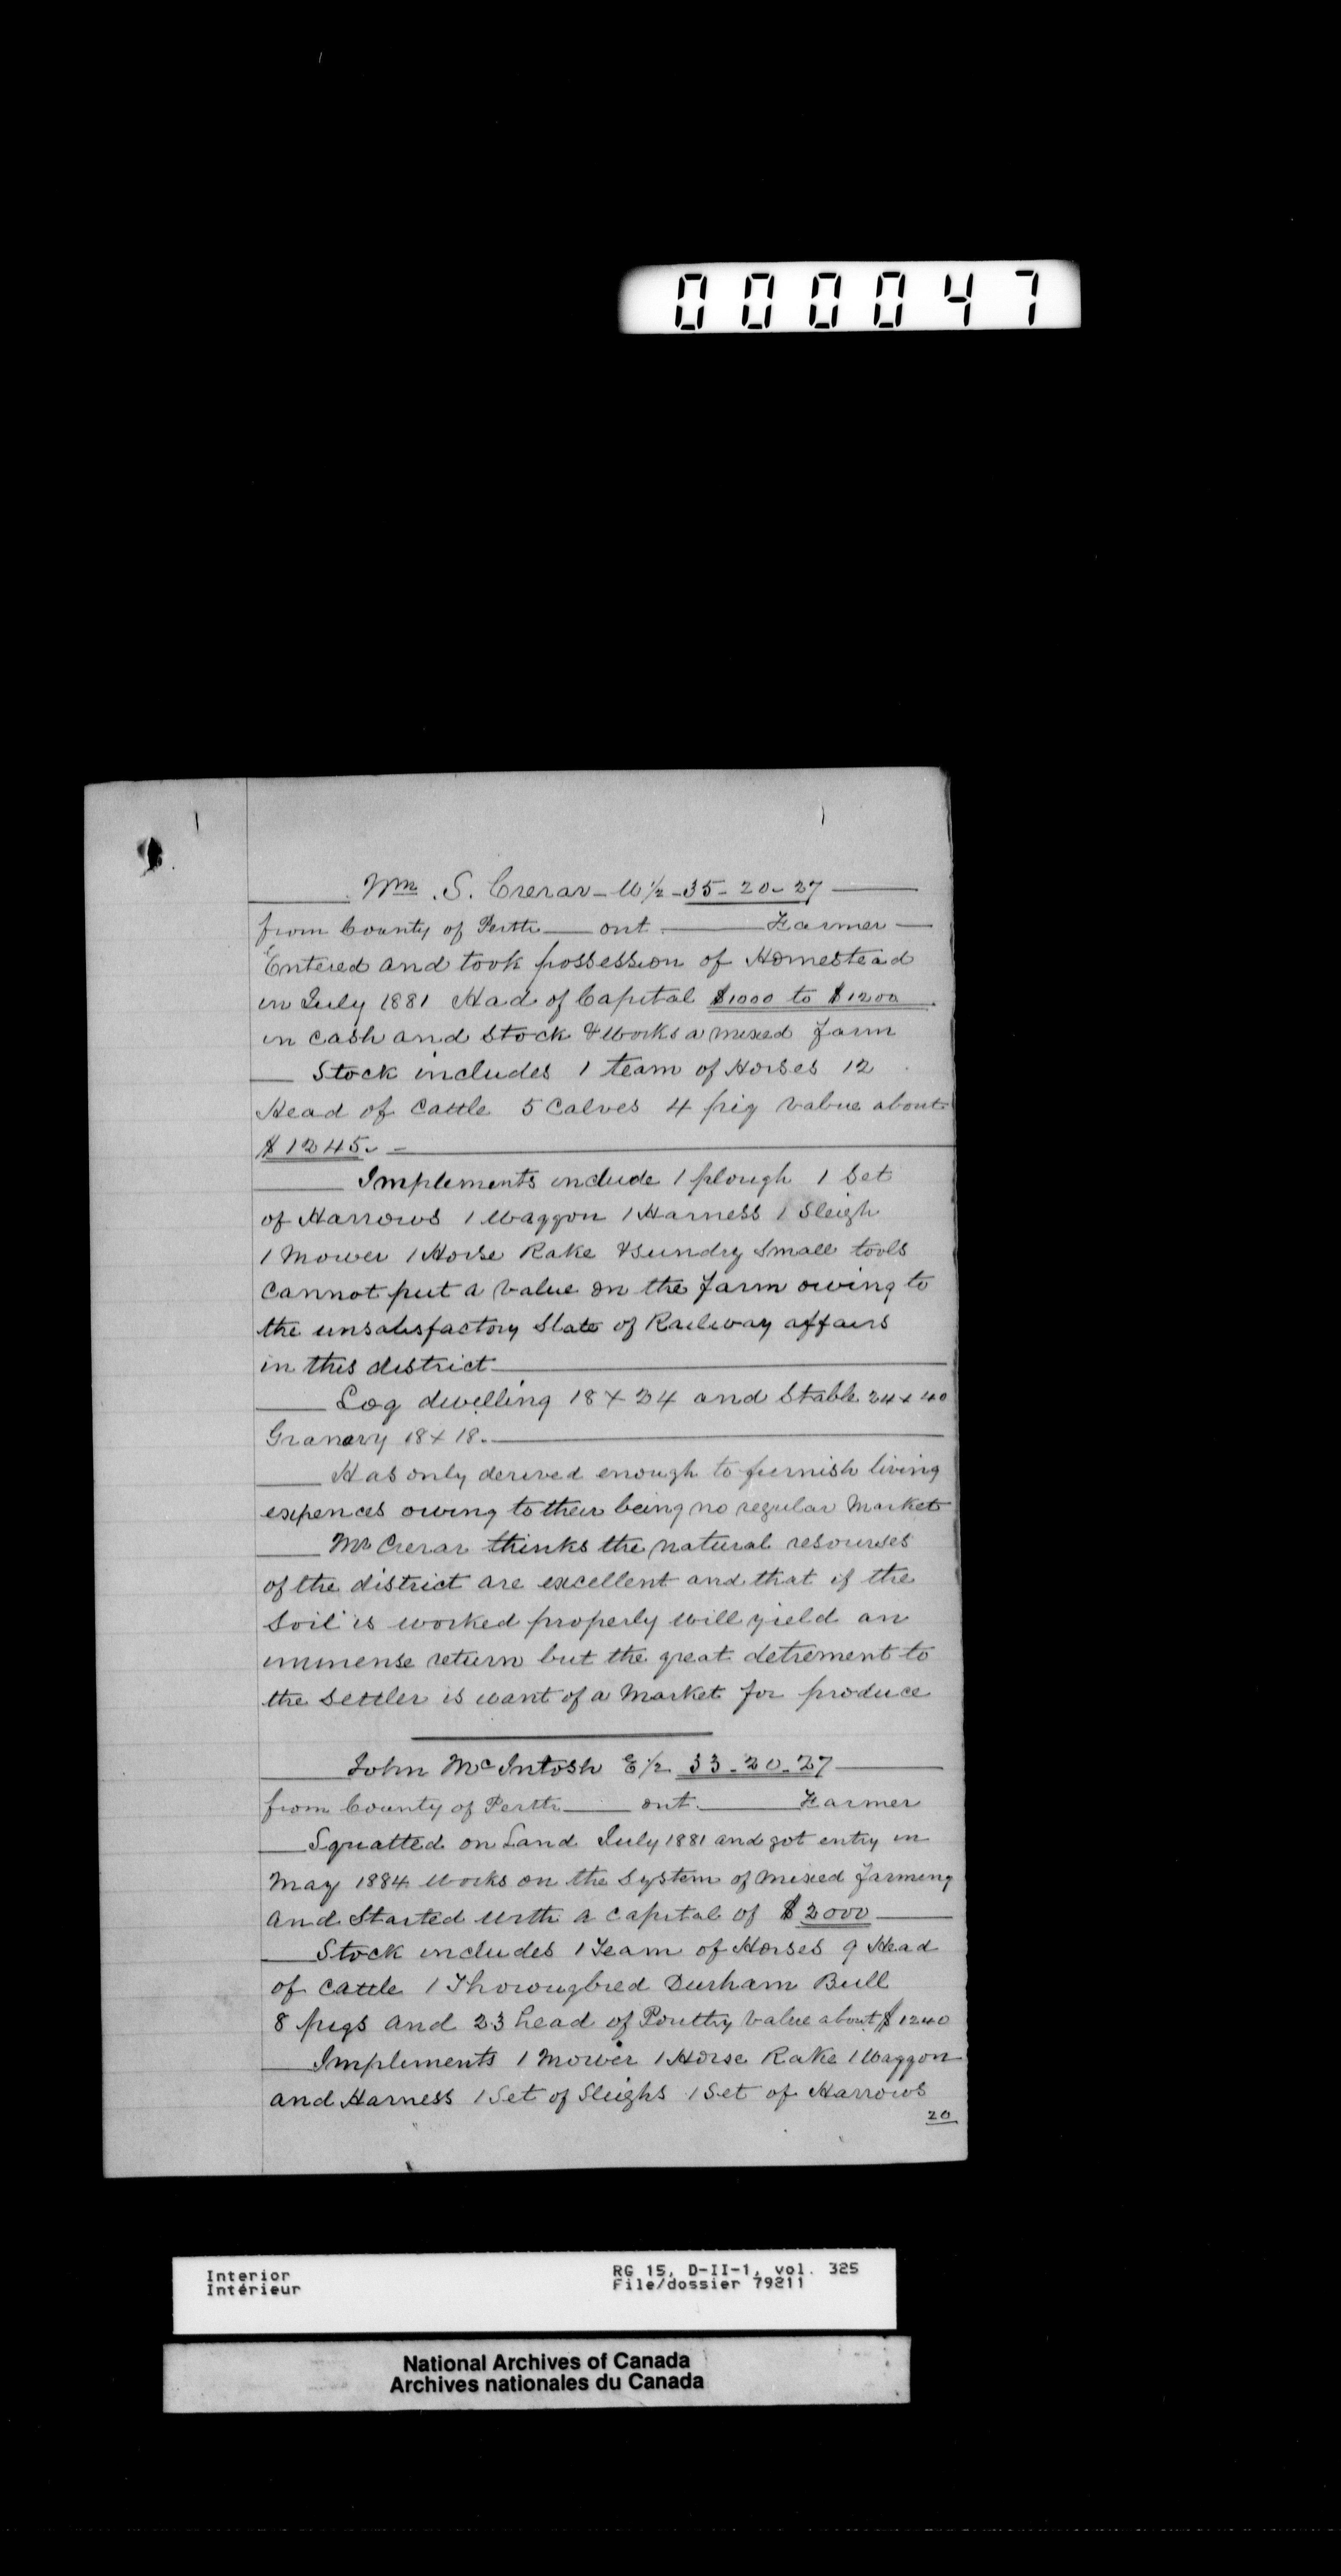 000047
Wm. S. Crerar - W 1/2 - 35 - 20 - 27
from County of Perth ont. Farmer
Entered and took possession of Homestead
in July 1881 Had of Capital $1000 to $1200.
in cash and stock & works a mixed farm
Stock includes 1 team of Horses 12
Head of Cattle 5 Calves 4 pig value about
$1245. -
Implements include 1 plough 1 Set
of Harrows 1 Waggon 1 Harness 1 Sleigh
1 Mower 1 Horse Rake & Sundry Small tools
Cannot put a value on the farm owing to
the unsatisfactory State of Railway affairs
in this district
Log dwelling 18 x 24 and Stable 24 x 40
Granary 18 x 18.
Has only derived enough to furnish living
expences owing to their being no regular Market
Mr Crerar thinks the natural resourses
of the district are excellent and that if the
Soil is worked properly will yield an
immense return but the great detrement to
the Settler is want of a Market for produce
John McIntosh E 1/2 33 - 20 - 27
from County of Perth ont. Farmer
Squatted on Land July 1881 and got entry in
May 1884 works on the System of mixed farming
and Started with a Capital of $2000
Stock includes 1 Team of Horses 9 Head
of Cattle 1 Thorougbred Durham Bull
8 pigs and 23 head of Poultry value about $1240
Implements 1 Mower 1 Horse Rake 1 Waggon
and Harness 1 Set of Sleighs 1 Set of Harrows
20
Interior RG 15, D-II-1, vol. 325
Intérieur File/dossier 79211
National Archives of Canada
Archives nationales du Canada